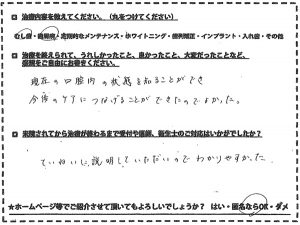 □ 治療内容を教えてください。(丸をつけてください)
むし歯・歯周病・定期的なメンテナンス・ホワイトニング・歯列矯正・インプラント・入れ歯・その他
□ 治療を終えられて、うれしかったこと、良かったこと、大変だったことなど、
感想をご自由にお書きください。
現在の口腔内の状態を知ることができ
今後のケアにつなげることができたのでよかった。
□ 来院されてから治療が終わるまで受付や医師、衛生士のご対応はいかがでしたか?
ていねいに説明していただいたので わかりやすかった
★ホームページ等でご紹介させて頂いてもよろしいでしょうか? はい・匿名ならOK・ダメ